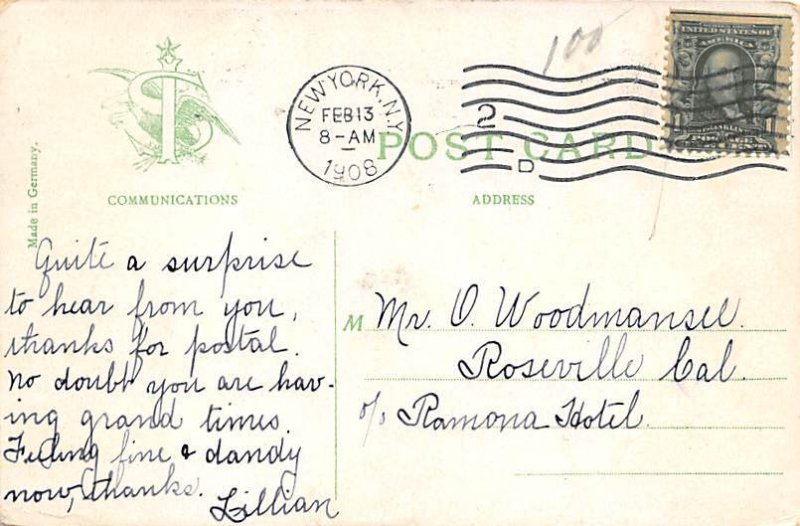 100
UNITED STATES OF
AMERICA
FRANKLIN
NEW YORK, N.Y.
FEB 13
8-AM
1908
2
D
POST CARD
COMMUNICATIONS
ADDRESS
Made in Germany.
Quite a surprise
to hear from you,
thanks for postal.
No doubt you are hav-
ing grand times.
Feeling fine & dandy
now, thanks.
Lillian
M
Mr. O. Woodmansee.
Roseville Cal.
c/o Ramona Hotel.